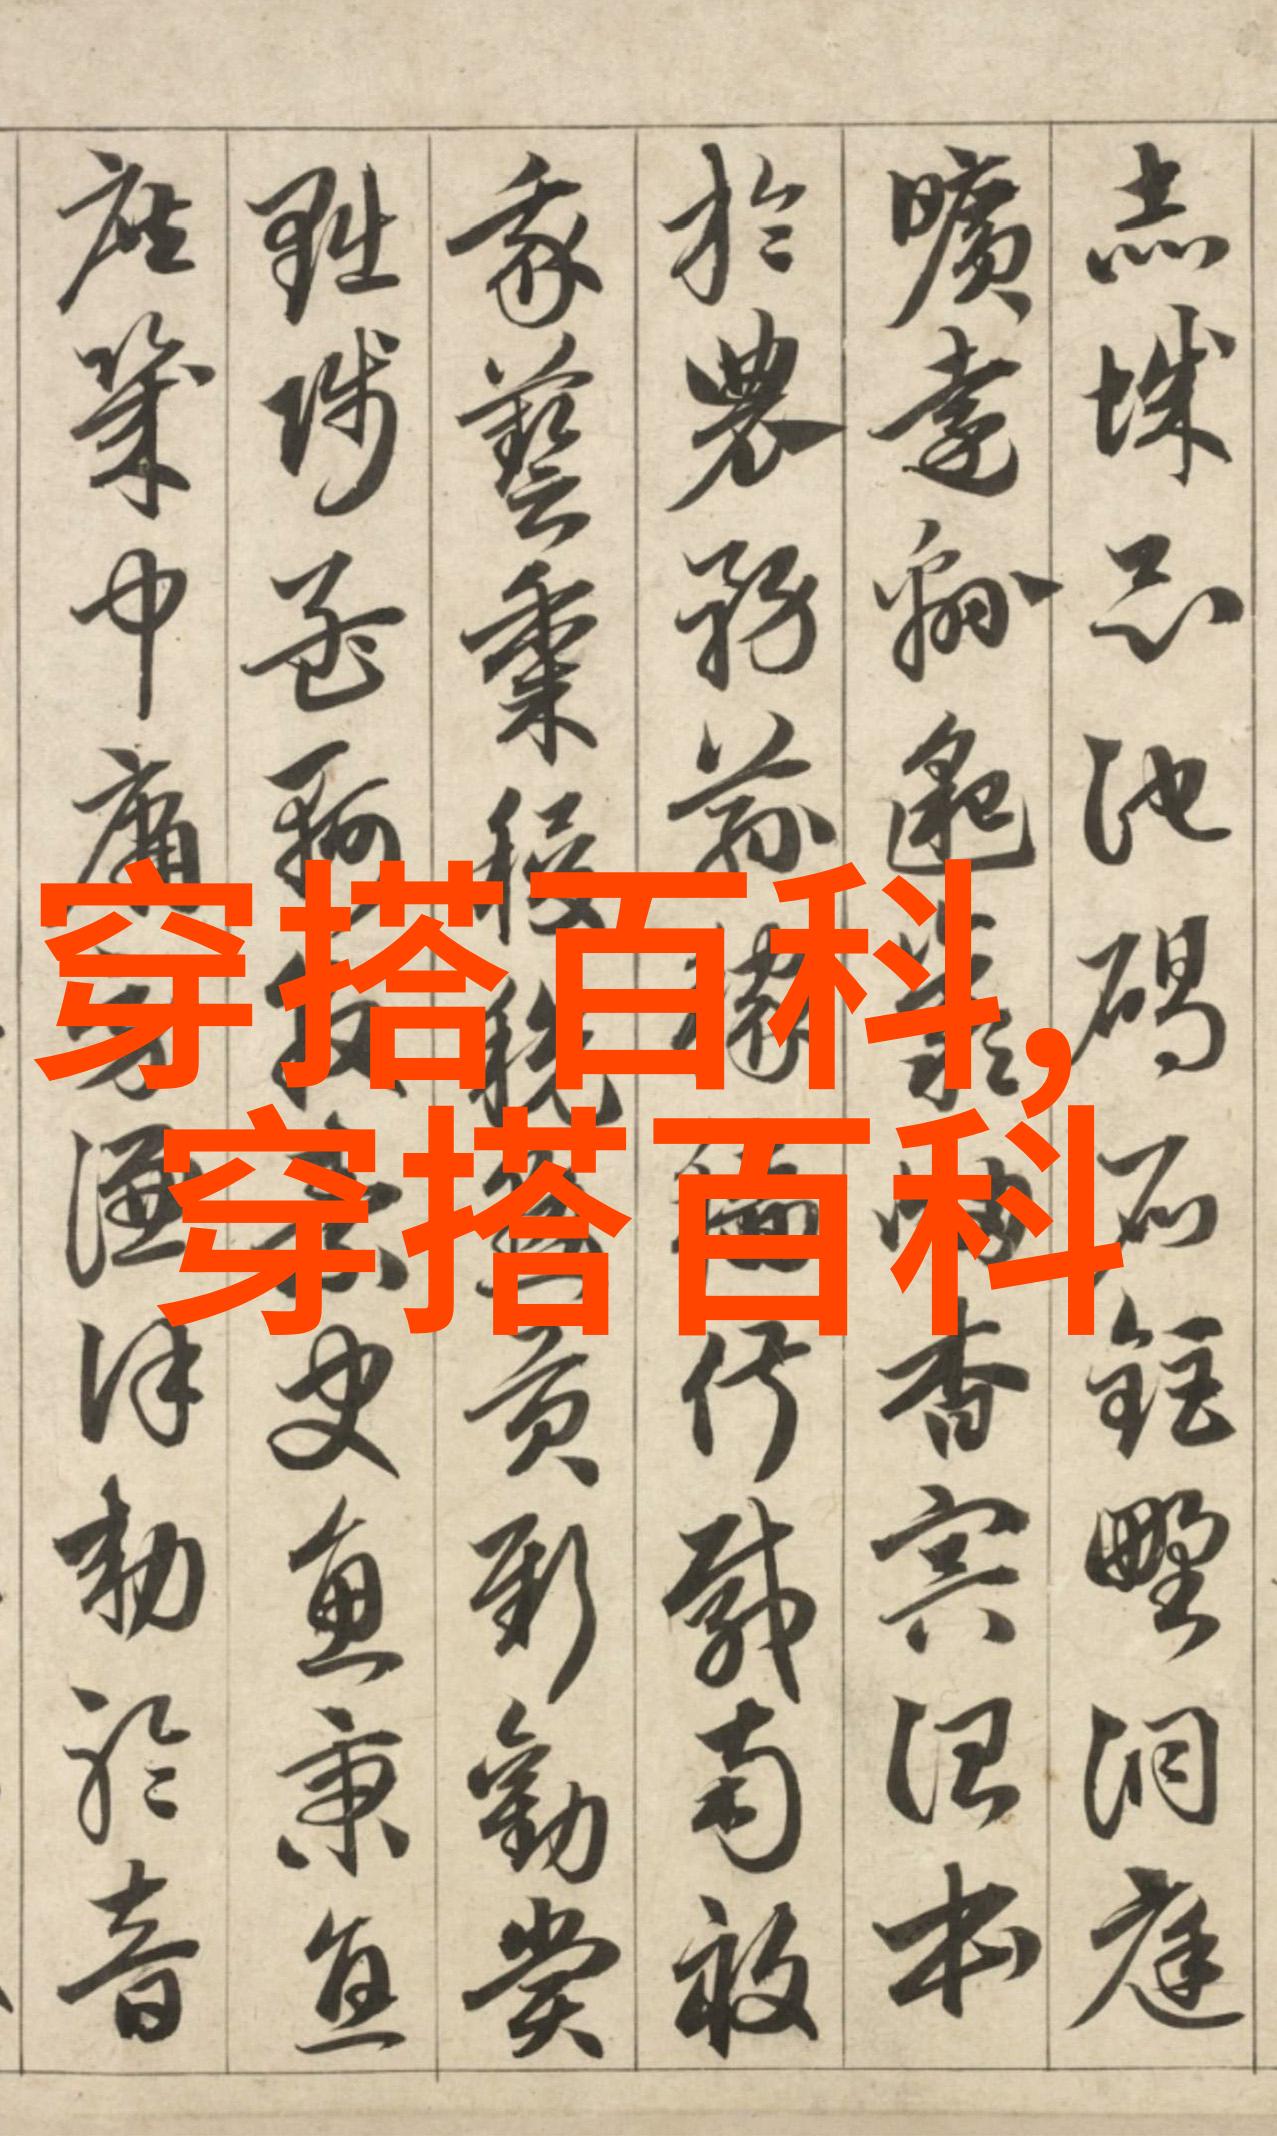 赤城昆池碣石鉅野洞庭
曠遠綿邈巖岫杳冥治本
於農務茲稼穡俶載南畝
我藝黍稷稅熟貢新勸賞
黜陟孟軻敦素史魚秉直
庶幾中庸勞謙謹勅聆音
穿搭百科,
穿搭百科